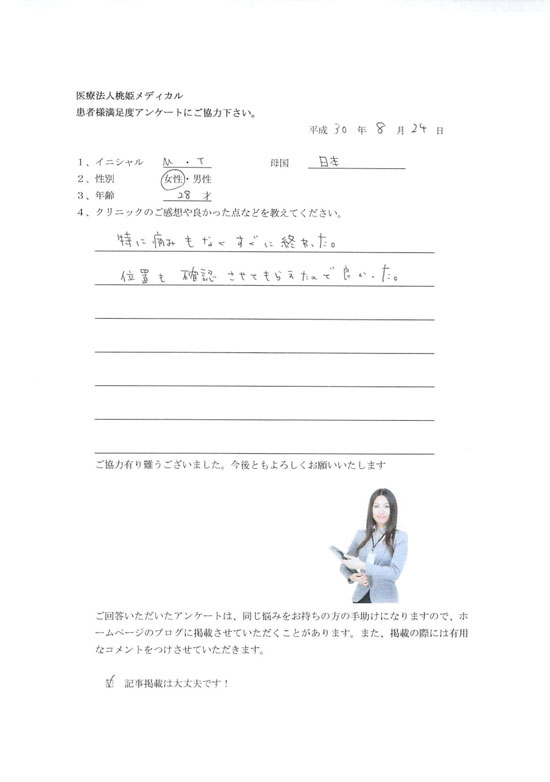 医療法人桃姫メディカル
患者様満足度アンケートにご協力下さい。
平成 30 年 8 月 24 日
1、イニシャル M ・ T 母国 日本
2、性別 女性・男性
3、年齢 28 才
4、クリニックのご感想や良かった点などを教えてください。
特に痛みもなくすぐに終わった。
位置も確認させてもらえたので良かった。
ご協力有り難うございました。今後ともよろしくお願いいたします
ご回答いただいたアンケートは、同じ悩みをお持ちの方の手助けになりますので、ホ
ームページのブログに掲載させていただくことがあります。また、掲載の際には有用
なコメントをつけさせていただきます。
☑ 記事掲載は大丈夫です！